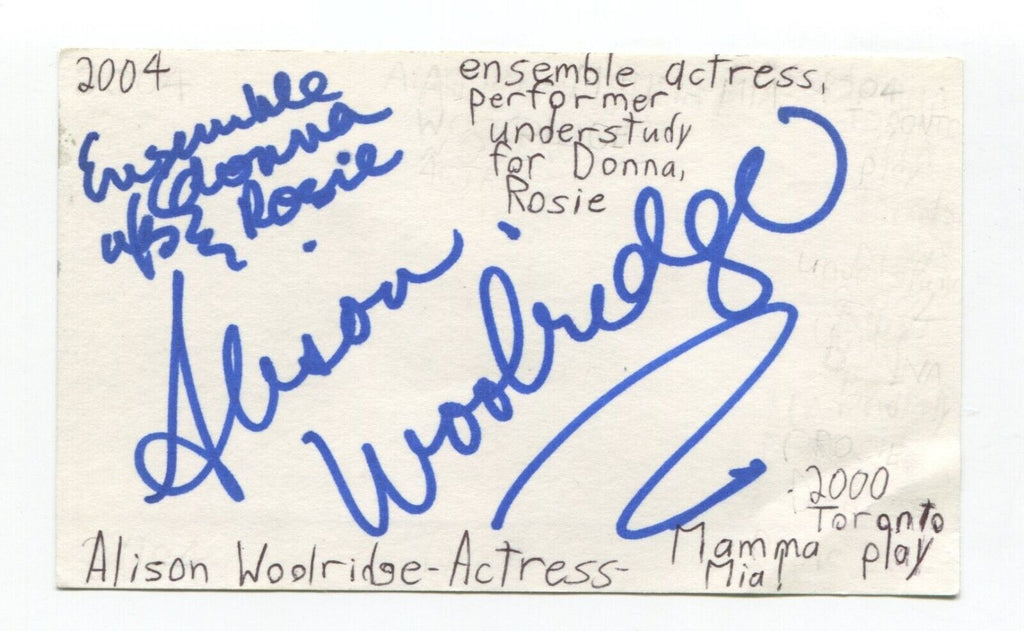 2004
ensemble actress,
performer
understudy
for Donna,
Rosie
Ensemble
Donna
Rosie
Alison
Woolridge
Alison Woolridge-Actress-
Mamma
Mia!
-2000
Toronto
play